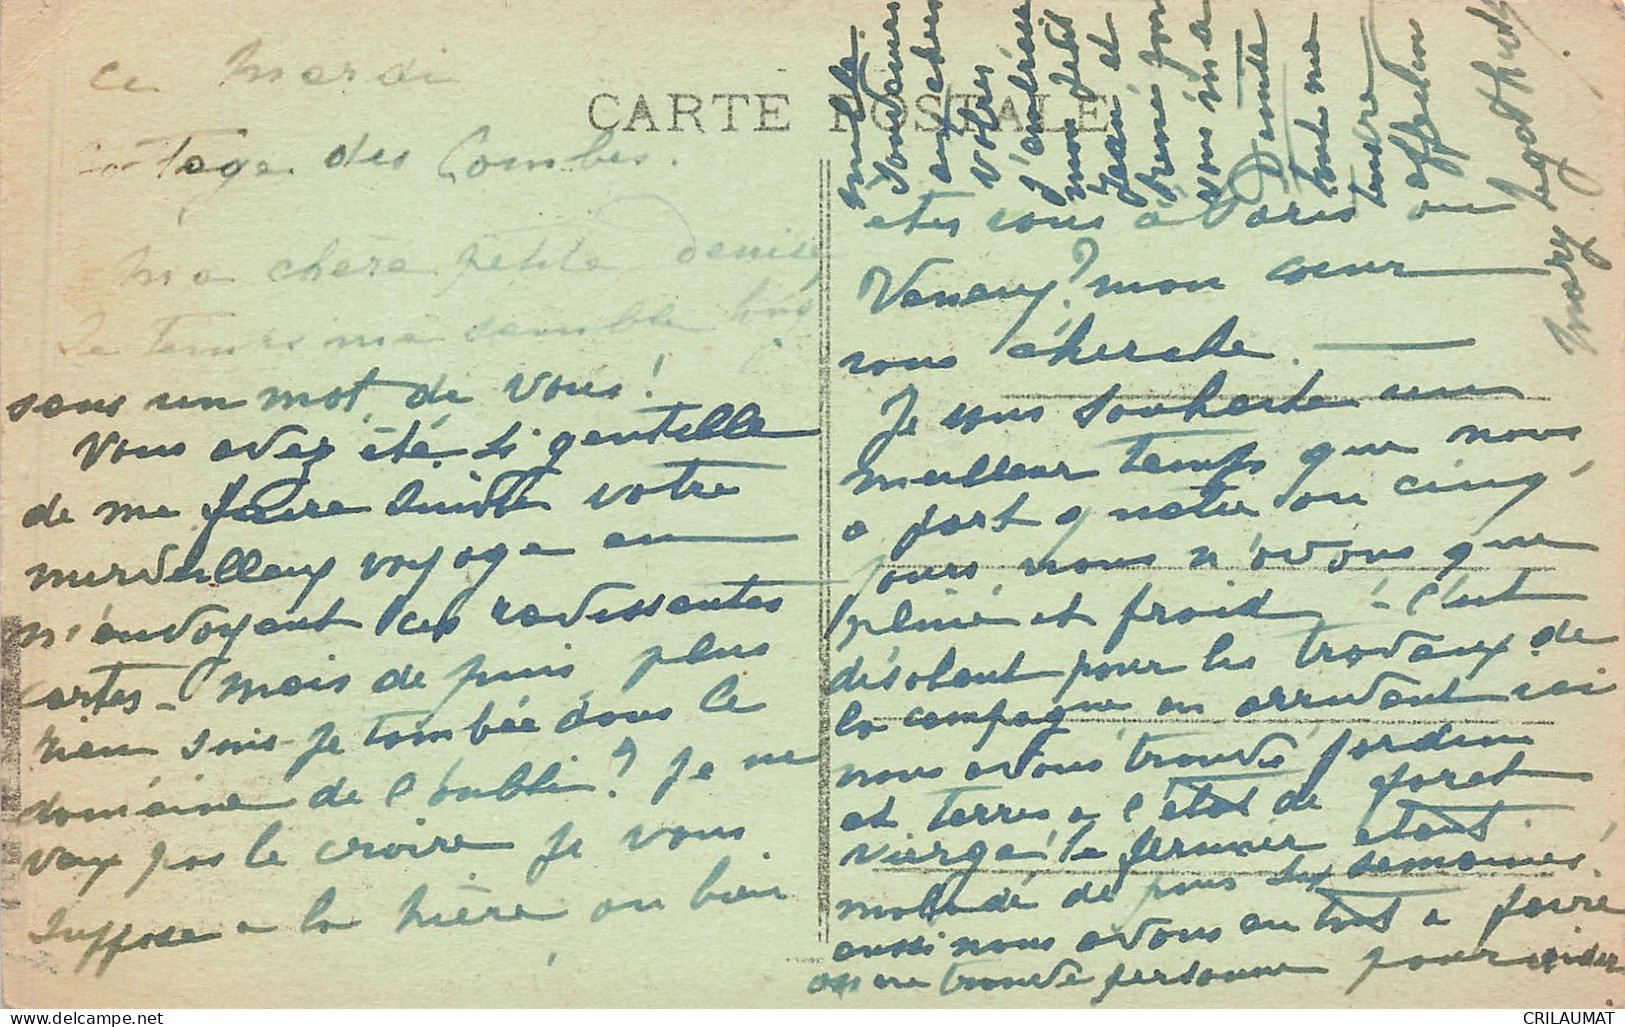 CARTE POSTALE
ce Mardi
Tage des Combes.
Ma chère petite Denise
Le temps me semble long
sans un mot de vous!
Vous avez été si gentille
de me faire suivre votre
merveilleux voyage en
m'envoyant ces ravissantes
cartes - mais depuis plus
rien suis-je tombée dans le
domaine de l'oubli? Je ne
veux pas le croire je vous
suppose a la hière ou bien
êtes vous à Paris ou
Veneux? mon cœur
vous cherche.
Je vous souhaite un
meilleur temps que nous
a part quatre ou cinq
jours, nous n'avons que
pluie et froid - c'est
désolant pour les travaux de
la campagne en arrivant ici
nous avons trouvé jardin
et terres a l'état de foret
vierge! le fermier étant
malade depuis six semaines
aussi nous avons eu tout a faire
on ne trouve personne pour aider
mille
Souvenirs
aux chers
Votres
J'embrasse
mon petit
Jean et
René pour
vous ma
Denise
toute ma
tendre
affection